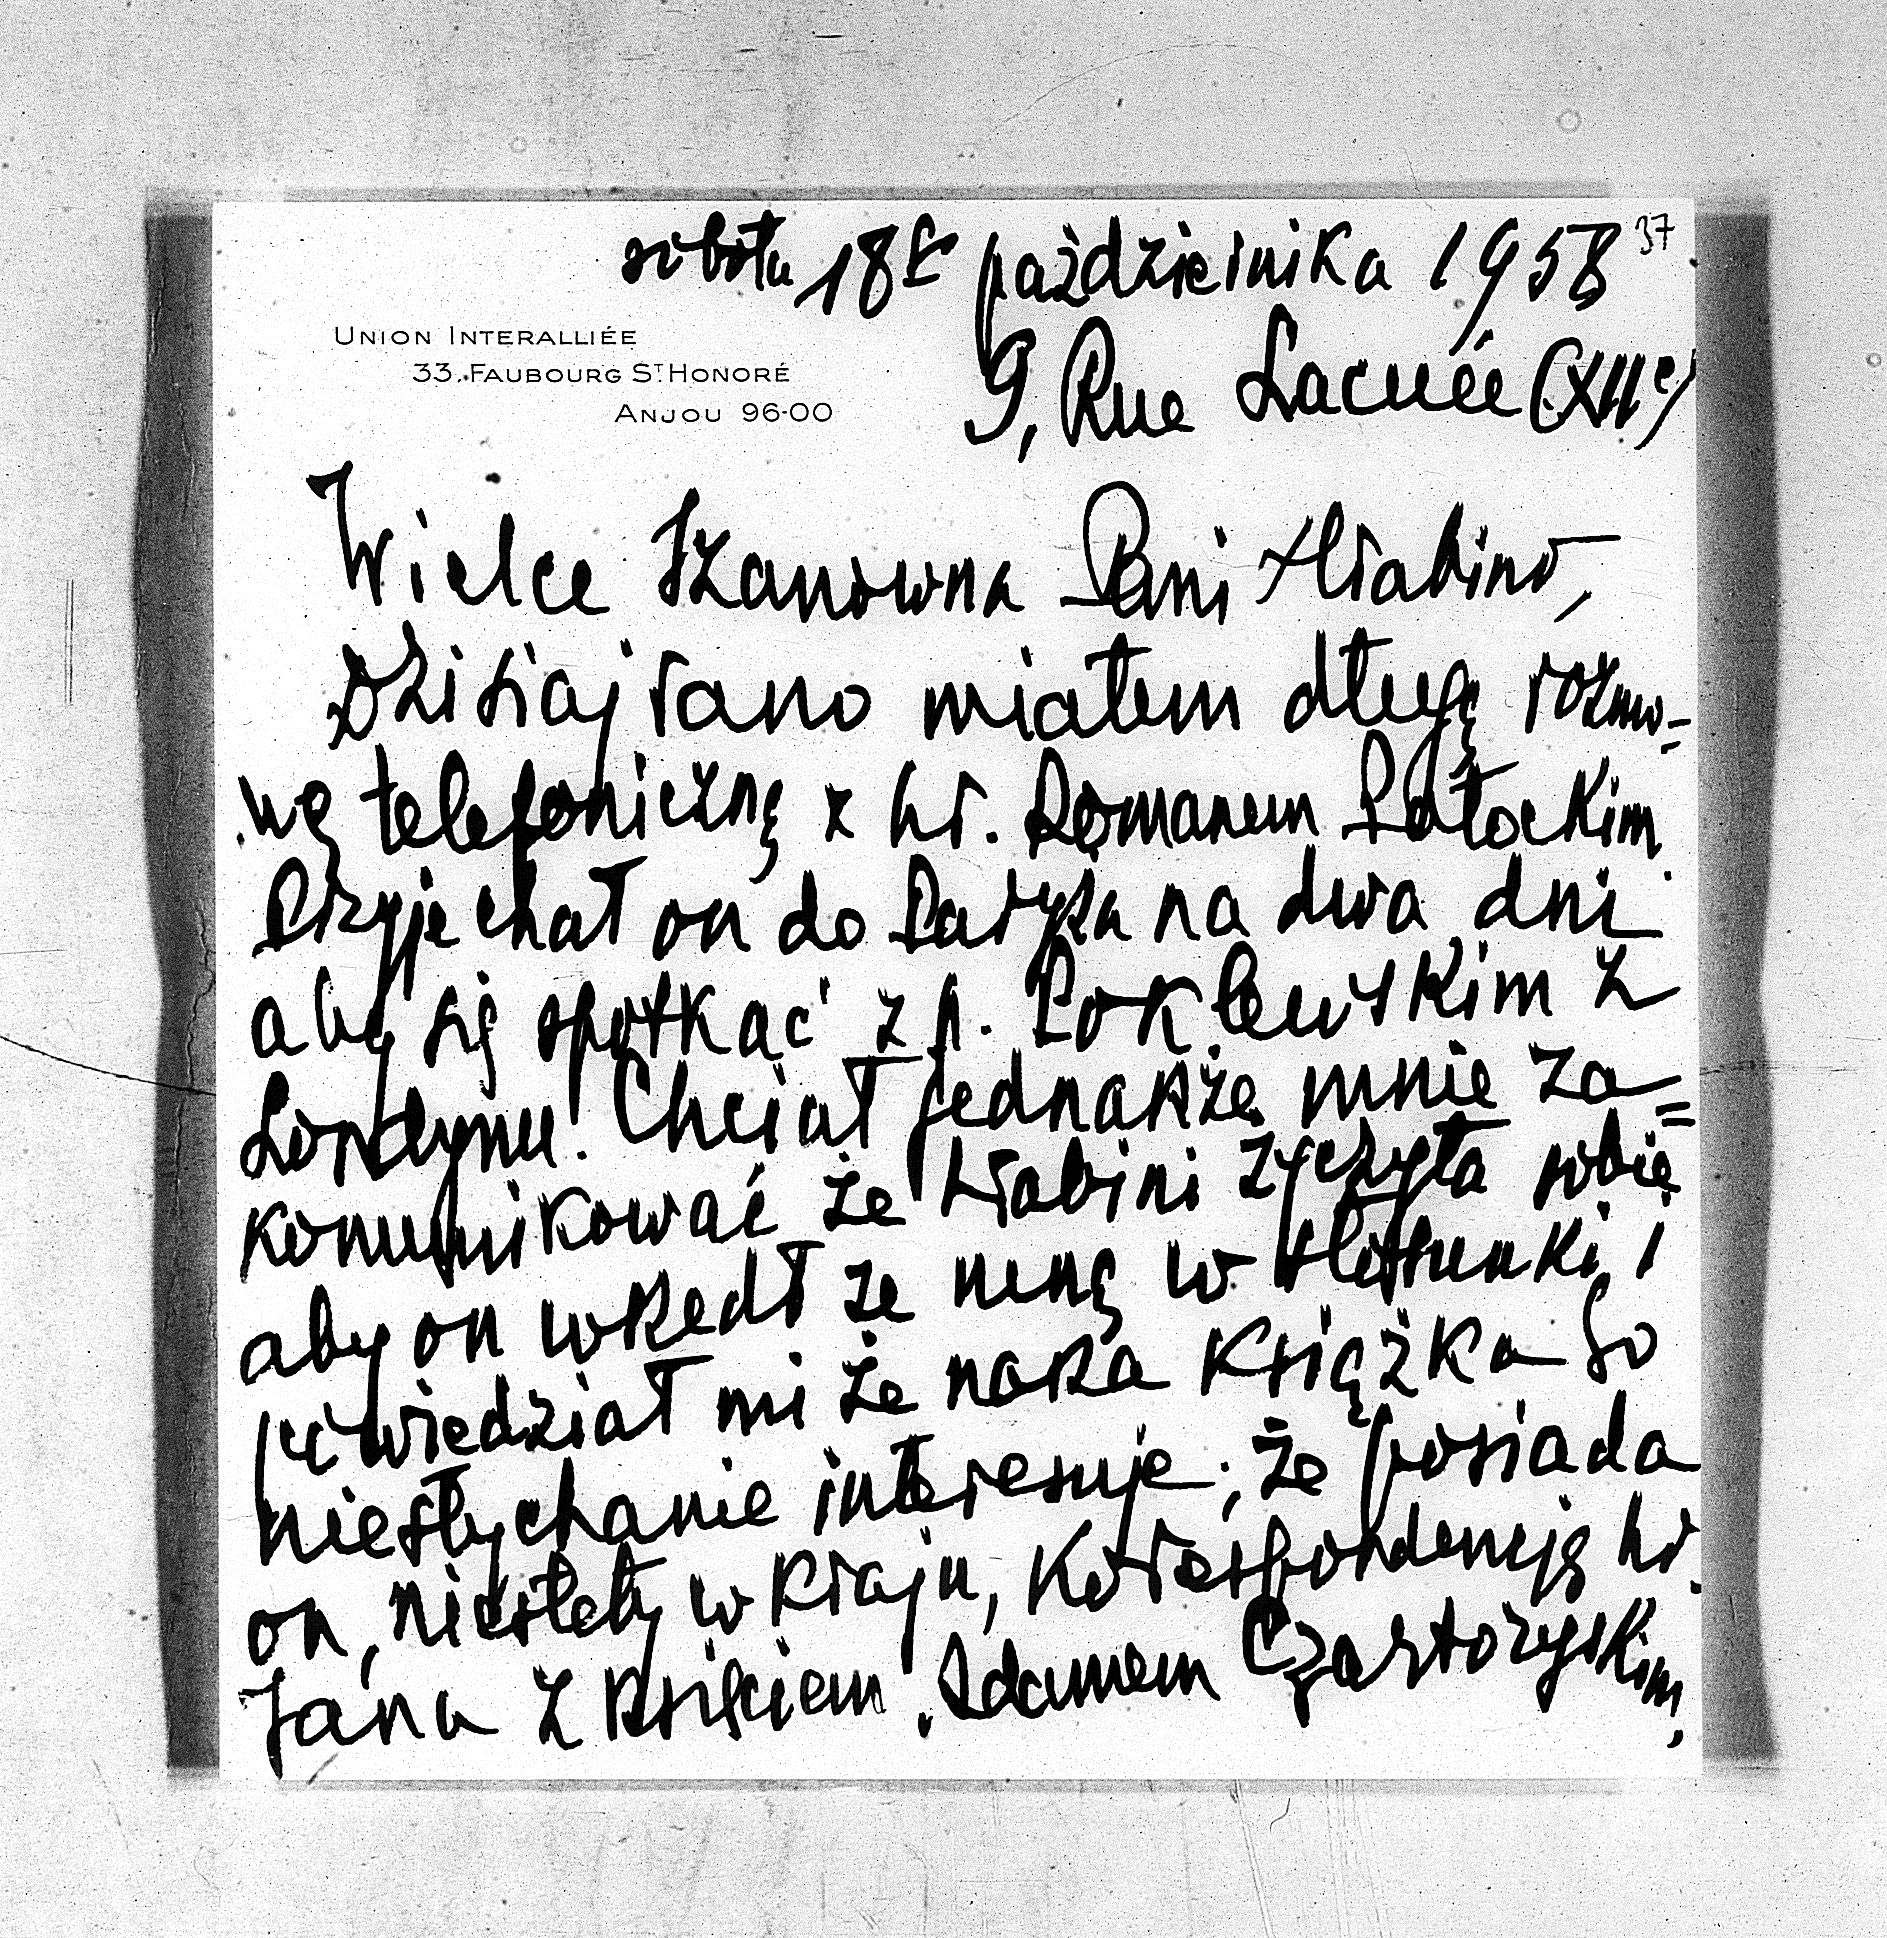 37
sobota 18 października 1958
UNION INTERALLIÉE
33, FAUBOURG ST HONORÉ
ANJOU 96-00
9, Rue Lacuée (XIIe)
Wielce Szanowna Pani Hrabino,
Dzisiaj rano miałem długą rozmo-
wę telefoniczną z hr. Romanem Potockim.
Przyjechał on do Paryża na dwa dni
aby się spotkać z p. Poklewskim z
Londynu. Chciał jednakże mnie za=
komunikować że Hrabini życzyła sobie
aby on wszedł ze mną w stosunki i
powiedział mi że nasza książka Go
niesłychanie interesuje; że posiada
on, niestety w kraju, korespondencję hr.
Jana z księciem Adamem Czartoryskim,